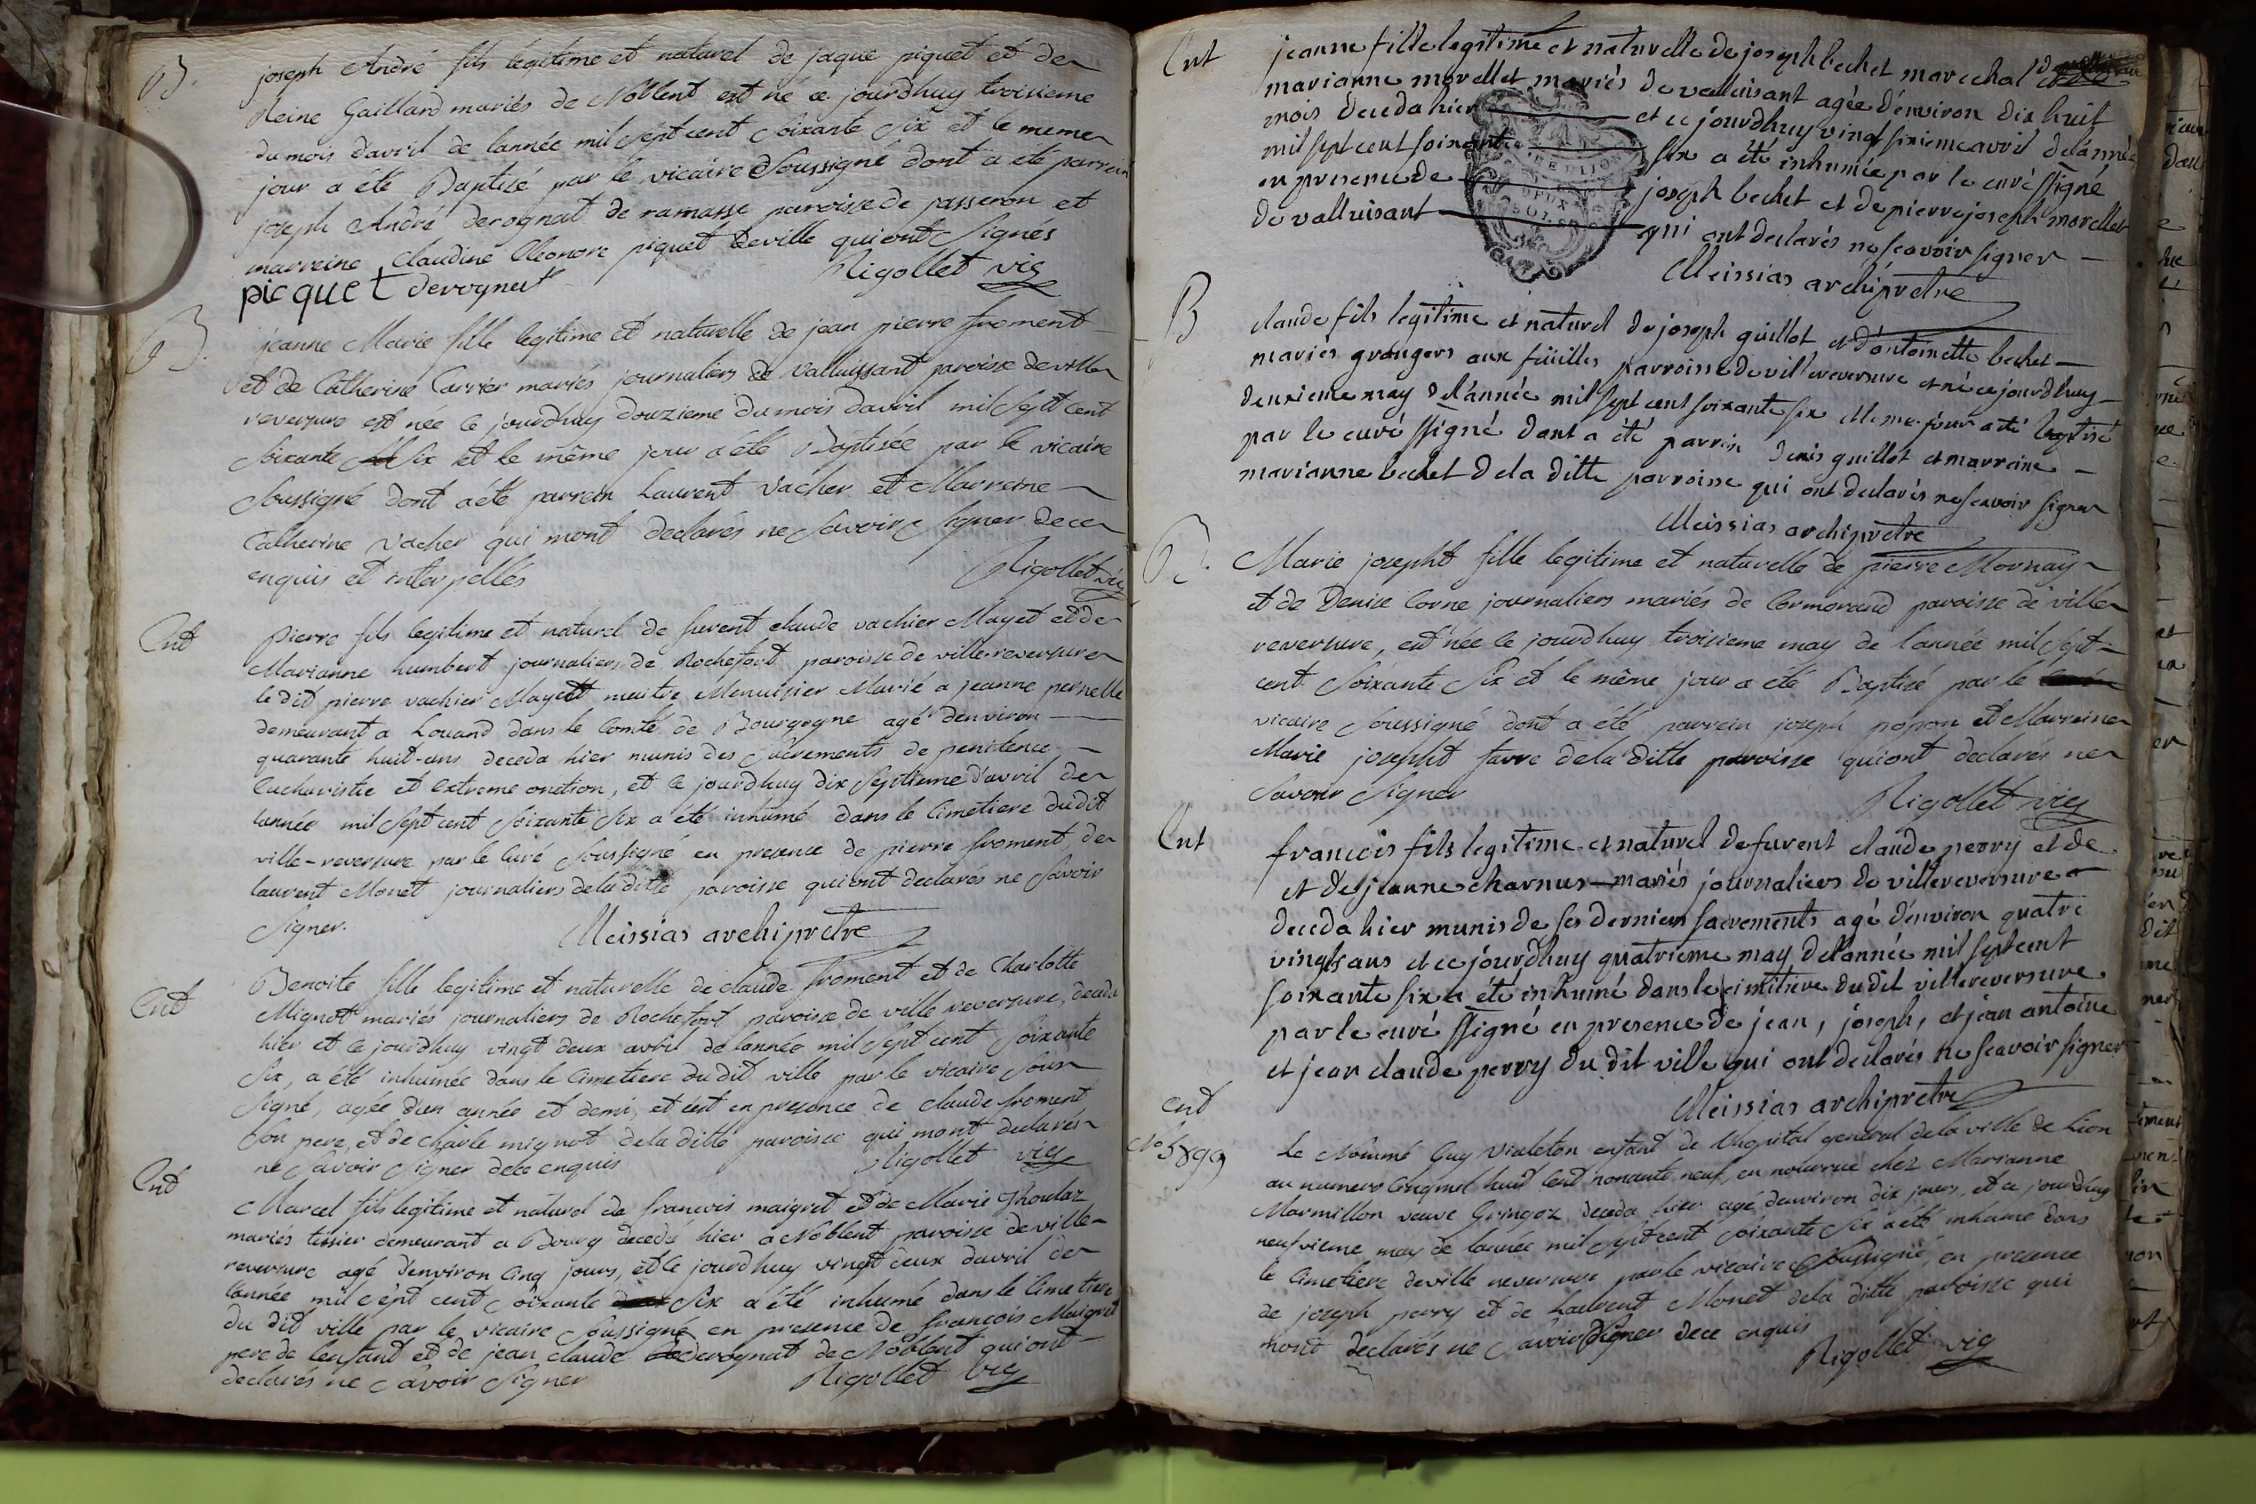 B.
joseph André fils legitime et naturel de jaque piquet et de
Reine Gaillard mariés de Noblent est né ce jourdhuy troisieme
du mois davril de lannée mil sept cent soixante six et le meme
jour a été Baptisé par le vicaire soussigné dont a été parrein
joseph André derognat de ramasse paroisse de jasseron et
marreine Claudine Eleonore piquet deville qui ont signés
picquet derognat Rigollet vic
B.
jeanne Marie fille legitime et naturelle de jean pierre froment
et de Catherine Carrier mariés journaliers de valluissant paroisse deville
reversure est née ce jourdhuy douzieme du mois davril mil sept cent
soixante six et le même jour a été Baptisée par le vicaire
soussigné dont a été parrein Laurent vacher et Marreine
Catherine vacher qui mont declarés ne savoire signer de ce
enquis et interpellés Rigollet vic
Ent
pierre fils legitime et naturel de furent claude vachier Mayet et de
Marianne humbert journaliers de Rochefort paroisse de ville-reversure
le dit pierre vachier Mayett maitre Menuisier Marié a jeanne pernelle
demeurant a Louand dans le Comté de Bourgogne agé denviron
quarante huit-ans deceda hier munis des sacrements de penitence
Eucharistie et Extreme onction, et ce jourdhuy dix septieme d'avril de
lannée mil sept cent soixante six a été inhumé dans le Cimetiere du dit
ville-reversure par le Curé soussigné en presence de pierre froment, de
laurent Monet journaliers dela ditte paroisse qui ont declarés ne savoir
signer. Meissias archiprêtre
Ent
Benoite fille legitime et naturelle de claude froment et de Charlotte
Mignot mariés journaliers de Rochefort paroisse de ville reversure, deceda
hier et ce jourdhuy vingt deux avril de lannée mil sept cent soixante
six, a été inhumée dans le Cimetiere du dit ville par le vicaire sous
signé, agée dun année et demi, et cest en presence de claude froment
son pere, et de charle mignot dela ditte paroisse qui mont declarés
ne savoir signer dece enquis Rigollet vic
Ent
Marcel fils legitime et naturel de francois maigret et de Marie
mariés tissier demeurant a Bourg decedé hier a Noblent paroisse de ville
reversure agé denviron cinq jours, et ce jourdhuy vingt deux davril de
lannée mil cept cent soixante six a été inhumé dans le Cimetiere
du dit ville par le vicaire soussigné en presence de francois Maigret
pere de lenfant et de jean claude derognat de Noblent qui ont
declarés ne savoir signer Rigollet vic
Ent
jeanne fille legitime et naturelle de joseph bechet marechal
marianne morellet mariés de valluisant agée d'environ dix huit
mois deceda hier et ce jourdhuy vingt sixieme avril de lannée
mil sept cent soixante six a été inhumée par le curé ssigné
en presence de joseph bechet et de pierre joseph morellet
de valluisant qui ont declarés ne scavoir signer
Meissias archiprêtre
B
claude fils legitime et naturel de joseph guillot et d'antoinette bechet
mariés grangers aux feüilles parroisse de villereversure et né ce jourdhuy
deuxieme may de lannée mil sept cent soixante six et le me jour a été baptisé
par le curé ssigné dont a été parrein denis guillot et marreine
marianne bechet de la ditte parroisse qui ont declarés ne scavoir signer
Meissias archiprêtre
B.
Marie josepht fille legitime et naturelle de pierre Mornay
et de Denise Corne journaliers mariés de Cormorand paroisse de ville
reversure, est née ce jourdhuy troisieme may de l'année mil sept
cent soixante six et le même jour a été Baptisé par le
vicaire soussigné dont a été parrein joseph popon et Marreine
Marie josepht favre dela ditte paroisse qui ont declarés ne
savoir signer Rigollet vic
Ent
francois fils legitime et naturel de furent claude perry et de
et de jeanne charnus mariés journaliers de villereversure
deceda hier munis de ses derniers sacrements agé d'environ quatre
vingts ans et ce jourdhuy quatrieme may de lannée mil sept cent
soixante six a été inhumé dans le cimitiere du dit villereversure
par le curé ssigné en presence de jean, joseph, et jean antoine
et jean claude perry du dit ville qui ont declarés ne scavoir signer
Meissias archiprêtre
ent
No 5899
Le Nommé Guy Vialeton enfant de l'hopital general dela ville de Lion
au numero Cinq mil huit cent nonante neuf, en nourrice chez Marianne
Marmillon veuve Gringoz, deceda hier agé denviron dix jours, et ce jourdhuy
neufvieme may de lannée mil sept cent soixante six a été inhumé dans
le Cimetiere deville reversure par le vicaire soussigné, en presence
de joseph perry et de Laurent Monet dela ditte paroisse qui
mont declarés ne savoir signer dece enquis
Rigollet vic